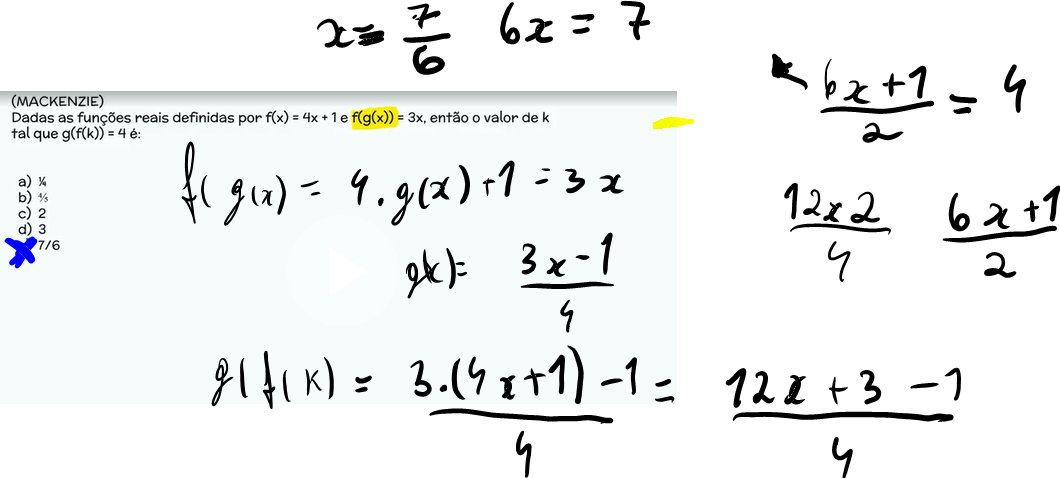 x = 7/6 6x = 7
(6x + 1)/2 = 4
(MACKENZIE)
Dadas as funções reais definidas por f(x) = 4x + 1 e f(g(x)) = 3x, então o valor de k
tal que g(f(k)) = 4 é:
a) ¼
b) ⅘
c) 2
d) 3
7/6
f( g(x) = 4.g(x)+1 = 3x
12x2/4 (6x+1)/2
g(x)= (3x-1)/4
g(f(K) = (3.(4x+1)-1)/4 = (12x+3-1)/4